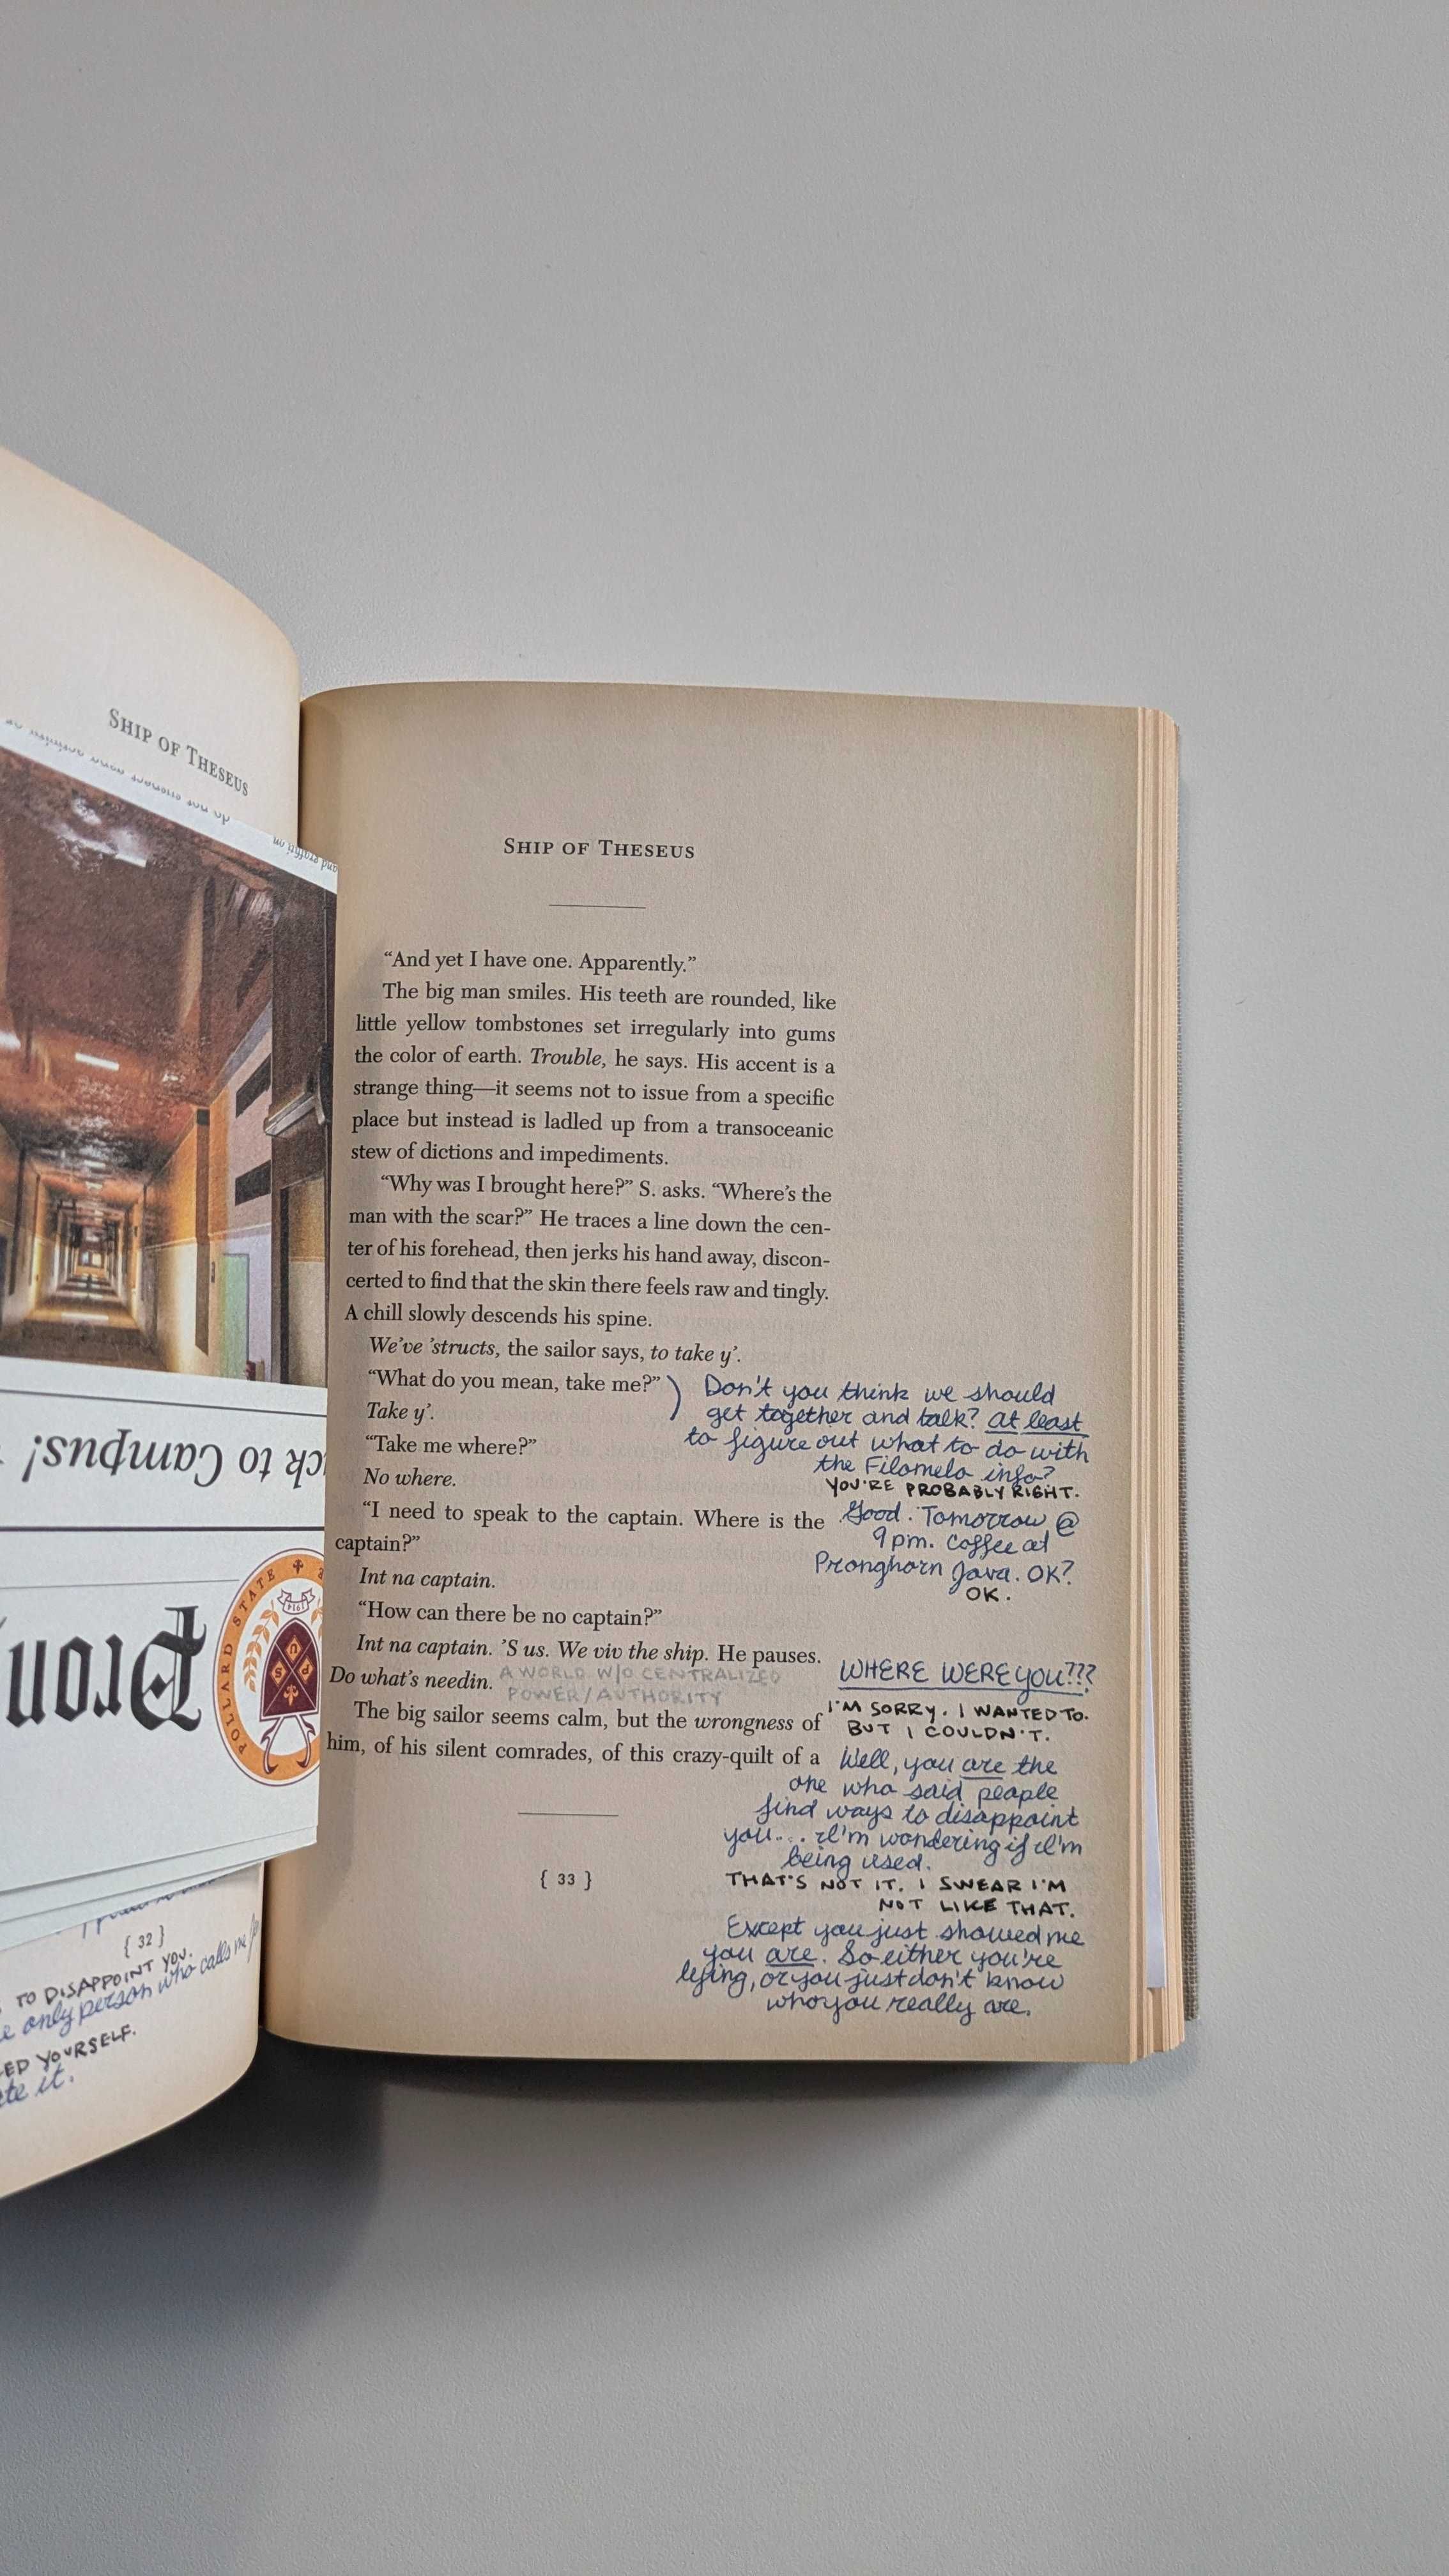 SHIP OF THESEUS
do not
and graffiti on
ck to Campus!
Pron
POLLARD STATE
1914
P U S
{ 32 }
TO DISAPPOINT YOU.
e only person who calls me
ED YOURSELF.
te it.
SHIP OF THESEUS
“And yet I have one. Apparently.”
The big man smiles. His teeth are rounded, like
little yellow tombstones set irregularly into gums
the color of earth. Trouble, he says. His accent is a
strange thing—it seems not to issue from a specific
place but instead is ladled up from a transoceanic
stew of dictions and impediments.
“Why was I brought here?” S. asks. “Where’s the
man with the scar?” He traces a line down the cen-
ter of his forehead, then jerks his hand away, discon-
certed to find that the skin there feels raw and tingly.
A chill slowly descends his spine.
We’ve ’structs, the sailor says, to take y’.
“What do you mean, take me?”
Take y’.
“Take me where?”
No where.
“I need to speak to the captain. Where is the
captain?”
Int na captain.
“How can there be no captain?”
Int na captain. ’S us. We viv the ship. He pauses.
Do what’s needin.
A WORLD W/O CENTRALIZED
POWER/AUTHORITY
The big sailor seems calm, but the wrongness of
him, of his silent comrades, of this crazy-quilt of a
{ 33 }
Don't you think we should
get together and talk? At least
to figure out what to do with
the Filomela info?
YOU'RE PROBABLY RIGHT.
Good. Tomorrow @
9 pm. Coffee at
Pronghorn Java. OK?
OK.
WHERE WERE YOU???
I'M SORRY. I WANTED TO.
BUT I COULDN'T.
Well, you are the
one who said people
find ways to disappoint
you... I'm wondering if I'm
being used.
THAT'S NOT IT. I SWEAR I'M
NOT LIKE THAT.
Except you just showed me
you are. So either you're
lying, or you just don't know
who you really are.